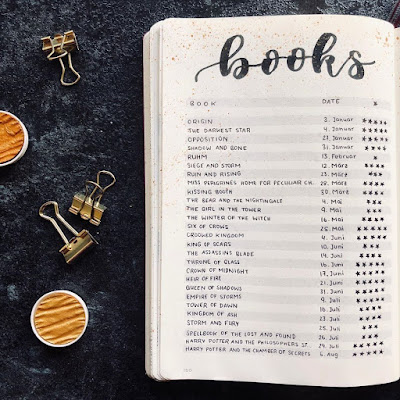 books
BOOK DATE ★
ORIGIN 3. Januar ★★★★★
THE DARKEST STAR 4. Januar ★★★★
OPPOSITION 21. Januar ★★★★★
SHADOW AND BONE 31. Januar ★★★★
RUHM 13. Februar ★
SIEGE AND STORM 12. März ★★★★
RUIN AND RISING 23. März ★★★★
MISS PEREGRINES HOME FOR PECULIAR CH. 28. März ★★★★
KISSING BOOTH 30. März ★★★
THE BEAR AND THE NIGHTINGALE 4. Mai ★★★
THE GIRL IN THE TOWER 9. Mai ★★★
THE WINTER OF THE WITCH 16. Mai ★★★★
SIX OF CROWS 28. Mai ★★★★★
CROOKED KINGDOM 4. Juni ★★★★★
KING OF SCARS 10. Juni ★★★
THE ASSASSINS BLADE 14. Juni ★★★★
THRONE OF GLASS 16. Juni ★★★★
CROWN OF MIDNIGHT 17. Juni ★★★★
HEIR OF FIRE 21. Juni ★★★★
QUEEN OF SHADOWS 31. Juni ★★★★
EMPIRE OF STORMS 9. Juli ★★★★
TOWER OF DAWN 16. Juli ★★★★
KINGDOM OF ASH 23. Juli ★★★★
STORM AND FURY 25. Juli ★★★
SPELLBOOK OF THE LOST AND FOUND 26. Juli ★★★
HARRY POTTER AND THE PHILOSOPHERS ST. 29. Juli ★★★★★
HARRY POTTER AND THE CHAMBER OF SECRETS 6. Aug ★★★★